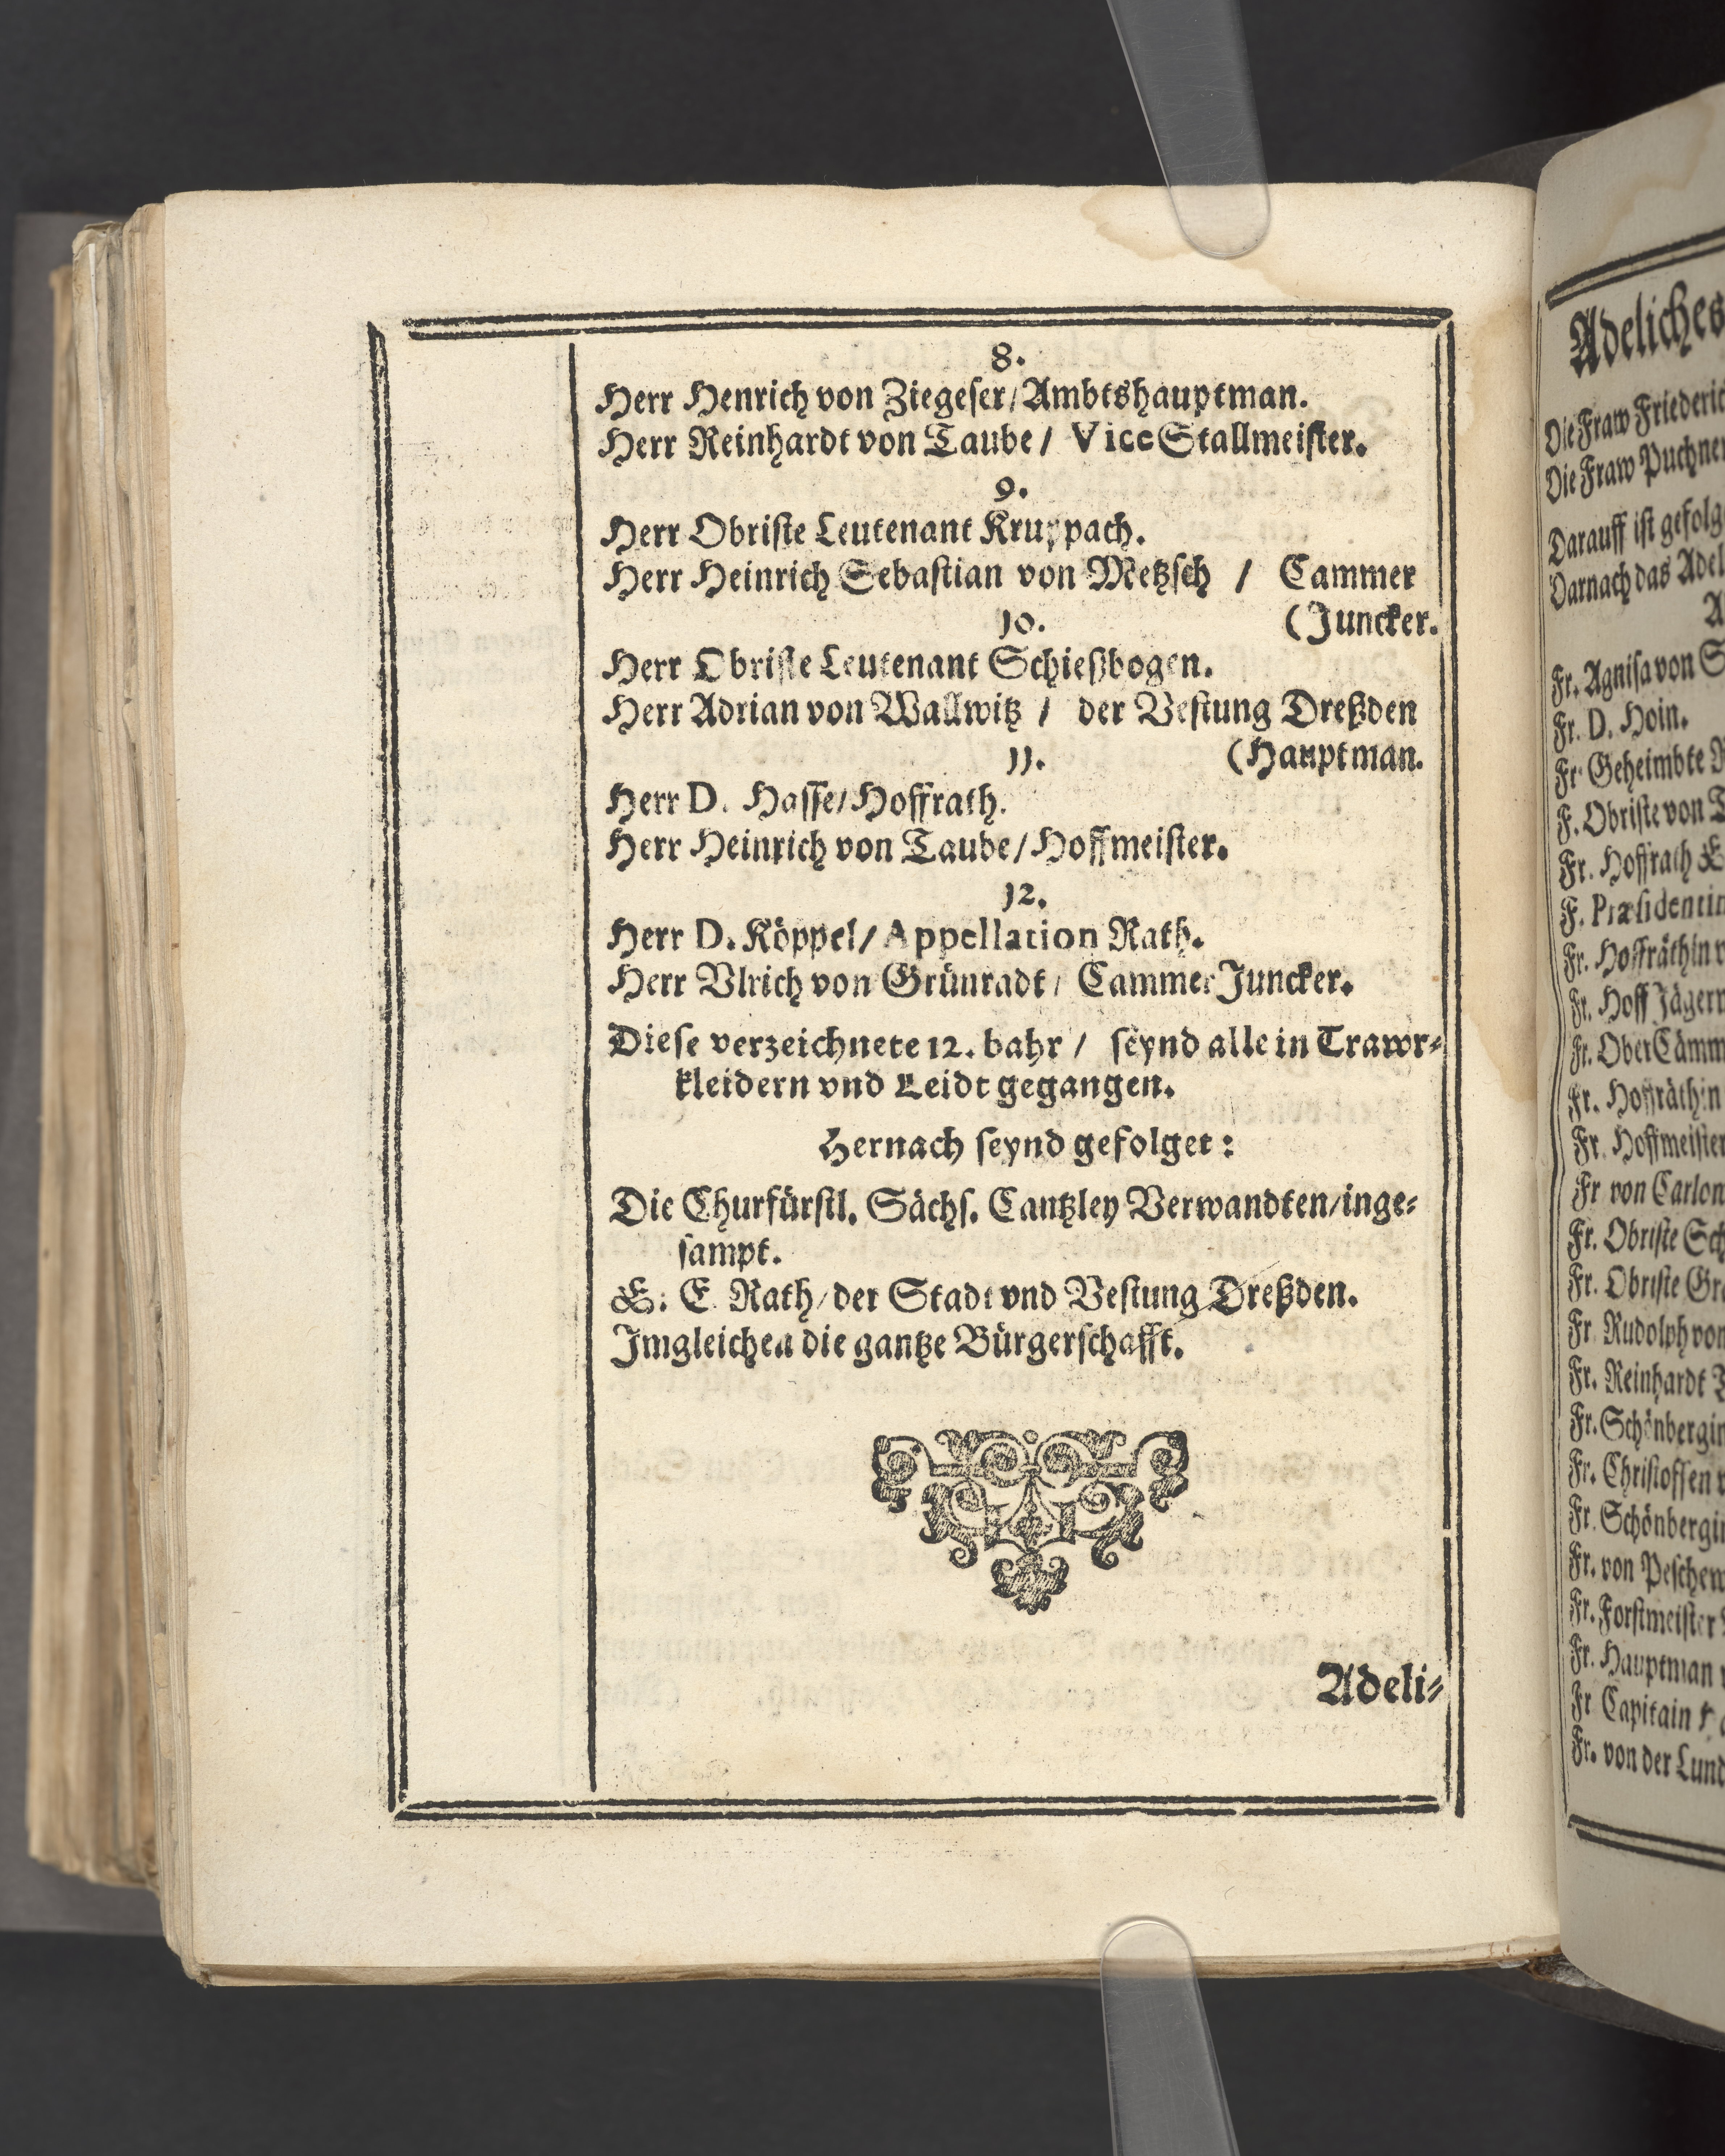 8.
Herr Henrich von Ziegeser/Ambtshauptman.
Herr Reinhardt von Taube/ Vice Stallmeister.
9.
Herr Obriste Leutenant Kruppach.
Herr Heinrich Sebastian von Metzsch / Cammer
10. (Juncker.
Herr Obriste Leutenant Schießbogen.
Herr Adrian von Wallwitz / der Vestung Dreßden
11. (Hauptman.
Herr D. Hasse/Hoffrath.
Herr Heinrich von Taube/Hoffmeister.
12.
Herr D. Köppel/Appellation Rath.
Herr Vlrich von Grünradt/ Cammer Juncker.
Diese verzeichnete 12. bahr / seynd alle in Trawr-
kleidern vnd Leidt gegangen.
Hernach seynd gefolget:
Die Churfürstl. Sächs. Cantzley Verwandten/inge-
sampt.
E. E. Rath/der Stadt vnd Vestung Dreßden.
Imgleichen die gantze Bürgerschafft.
Adeli-
Adeliches
Die Fraw
Die Fraw
Darauff ist
Darnach das
Fr. Agnisa von
Fr. D. Hoin.
Fr Geheimbte
F. Obriste von
Fr. Hoffrath
F.
Fr. Hoffräthin
Fr. Hoff
Fr. Ober
Fr. Hoffräthin
Fr. Hoffmeister
Fr von
Fr. Obriste
Fr. Obriste
Fr Rudolph von
Fr. Reinhardt
Fr.
Fr. Christoffen
Fr.
Fr. von
Fr. Forstmeister
Fr. Hauptman
Fr Capitain
Fr. von der